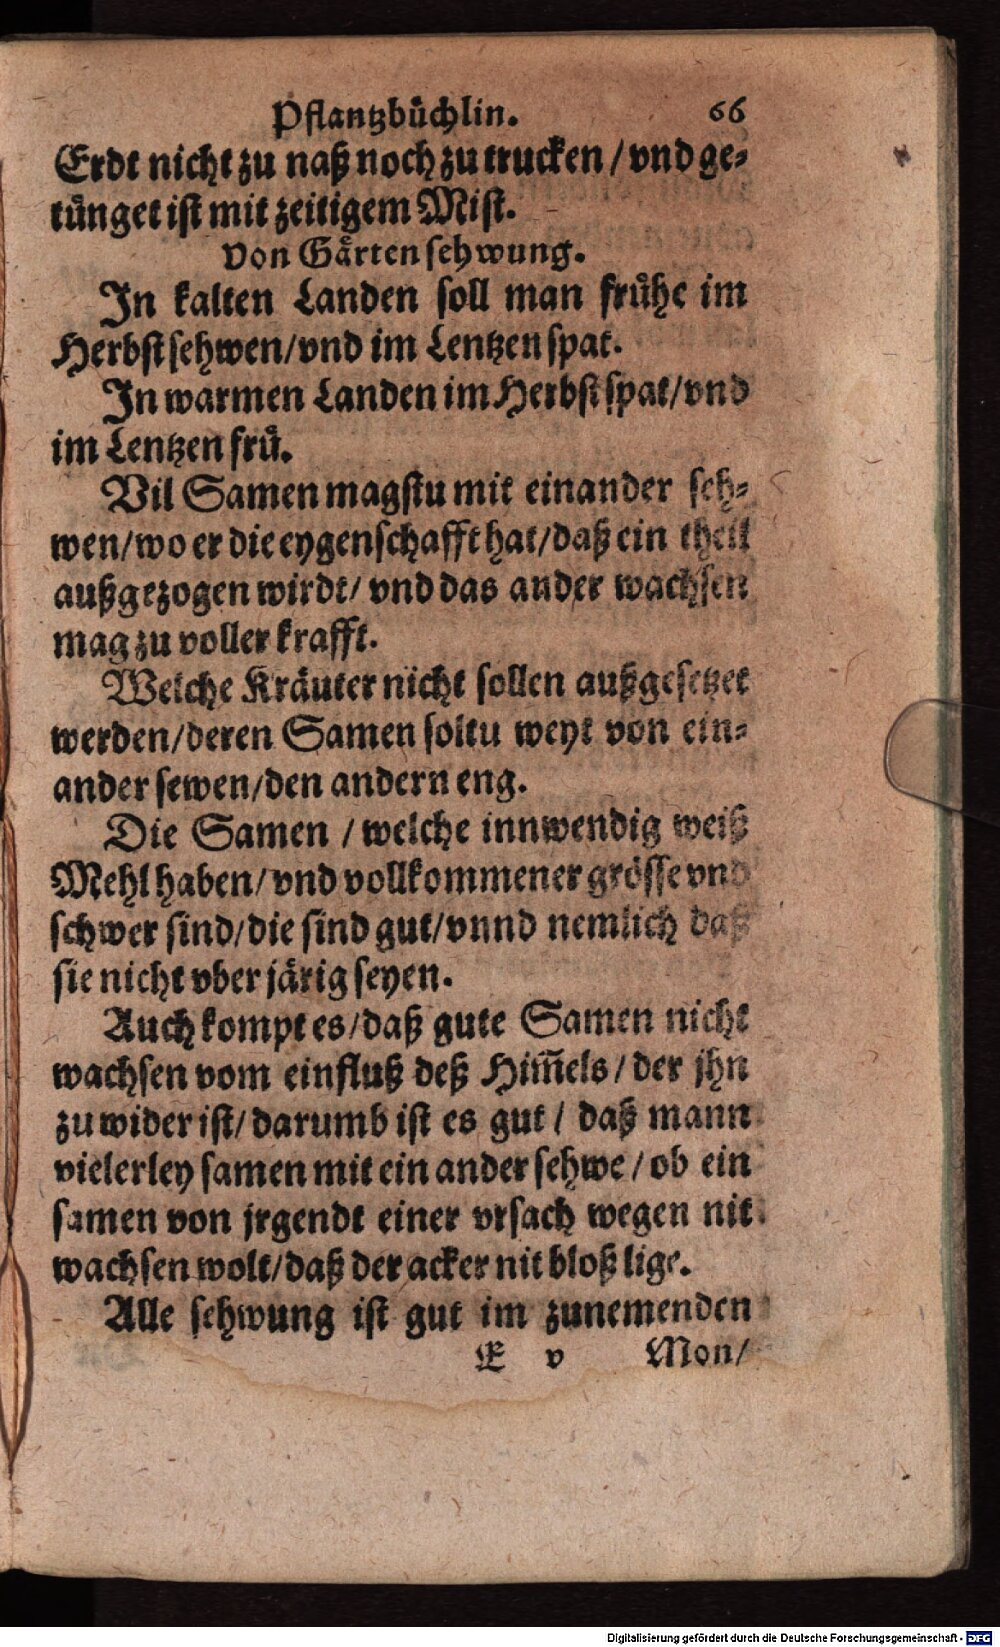 Pflantzbüchlin. 66
Erdt nicht zu naß noch zu trucken / vnd ge⸗
tünget ist mit zeitigem Mist.
Von Gärten sehwung.
In kalten Landen soll man frühe im
Herbst sehwen/vnd im Lentzen spat.
In warmen Landen im Herbst spat/vnd
im Lentzen frü.
Vil Samen magstu mit einander seh⸗
wen/wo er die eygenschafft hat/daß ein theil
außgezogen wirdt/ vnd das ander wachsen
mag zu voller krafft.
Welche Kräuter nicht sollen außgesetzet
werden/deren Samen soltu weyt von ein⸗
ander sewen/den andern eng.
Die Samen / welche innwendig weiß
Mehl haben/vnd vollkommener grösse vnd
schwer sind/die sind gut/vnnd nemlich daß
sie nicht vber järig seyen.
Auch kompt es/daß gute Samen nicht
wachsen vom einfluß deß Him̃els/der jhn
zu wider ist/darumb ist es gut / daß mann
vielerley samen mit ein ander sehwe/ob ein
samen von jrgendt einer vrsach wegen nit
wachsen wolt/daß der acker nit bloß lige.
Alle sehwung ist gut im zunemenden
E v Mon/
Digitalisierung gefördert durch die Deutsche Forschungsgemeinschaft - DFG